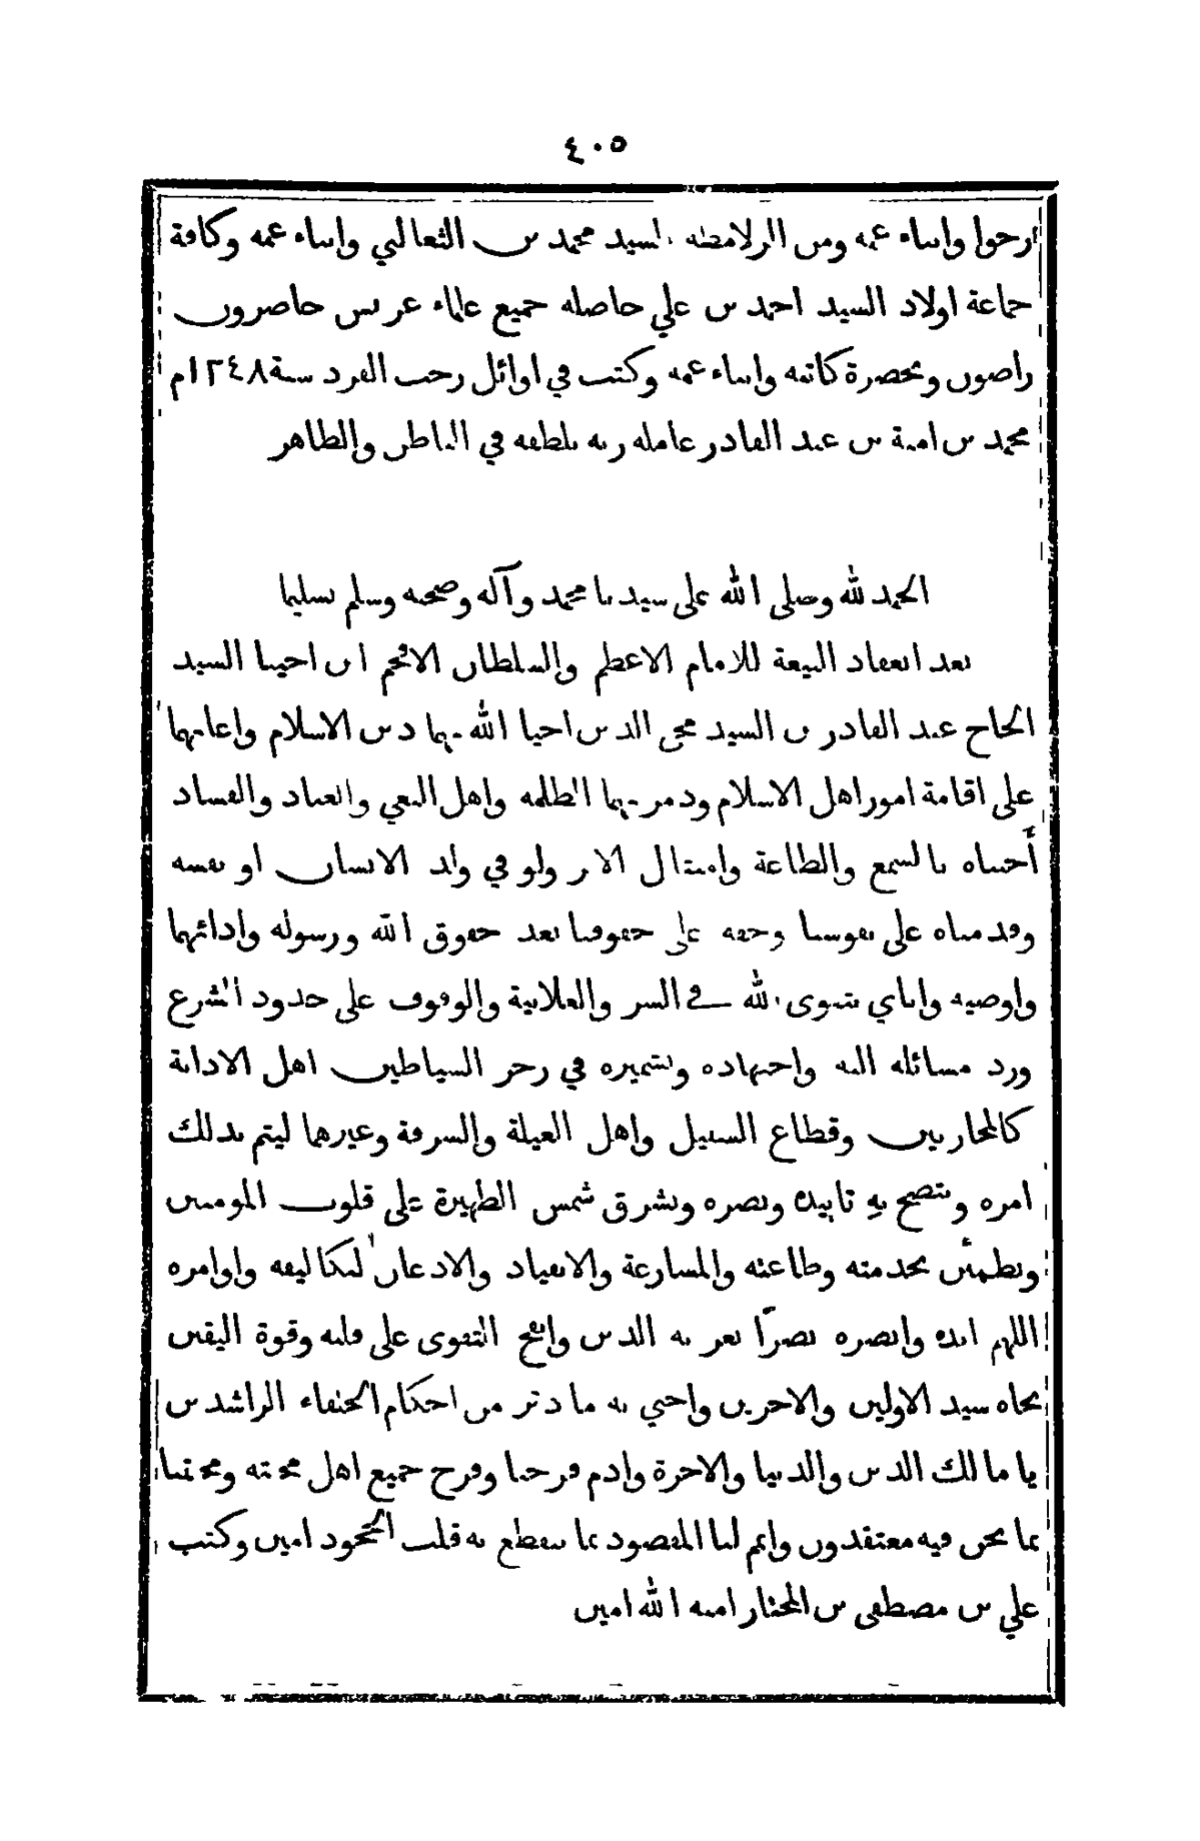 ٤٠٥
ارحوا وابناء عمه ومن الزلامطة السيد محمد بن الثعالبي وابناء عمه وكافة
جماعة اولاد السيد احمد بن علي حاصله جميع علماء غريس حاضرون
راضون وبحضرة كاتبه وابناء عمه وكتب في اوائل رجب الفرد سنة ١٢٤٨م
محمد بن امنة بن عبد القادر عامله ربه بلطفه في الباطن والظاهر
الحمد لله وصلى الله على سيدنا محمد وآله وصحبه وسلم تسليما
بعد انعقاد البيعة للامام الاعظم والسلطان الافخم ابن اخينا السيد
الحاج عبد القادر بن السيد محي الدين احيا الله بهما دين الاسلام واعانهما
على اقامة امور اهل الاسلام ودمر بهما الظلمه واهل البغي والعناد والفساد
أجبناه بالسمع والطاعة وامتثال الامر ولو في ولد الانسان او نفسه
وقدمناه على نفوسنا وحقه على حقوقنا بعد حقوق الله ورسوله وادائهما
واوصيه واياي بتقوى الله في السر والعلانية والوقوف على حدود الشرع
ورد مسائله اليه واجتهاده وتشميره في زجر الشياطين اهل الاذاية
كالمحاربين وقطاع السبيل واهل الغيلة والسرقة وغيرها ليتم بذلك
امره ويتضح به تاييده ونصره وتشرق شمس الظهيرة على قلوب المومنين
وتطمئن بخدمته وطاعته والمسارعة والانقياد والاذعان لتكاليفه واوامره
اللهم ايده وانصره نصرًا تعز به الدين وافتح التقوى على قلبه وقوة اليقين
بجاه سيد الاولين والاخرين واحيي به ما دثر من احكام الخلفاء الراشدين
يا مالك الدين والدنيا والاخرة وادم فرحنا وفرح جميع اهل محبته ومحبتنا
بما نحن فيه معتقدون واتم لنا المقصود بما ينقطع به قلب الجحود امين وكتب
علي بن مصطفى بن المختار امنه الله امين